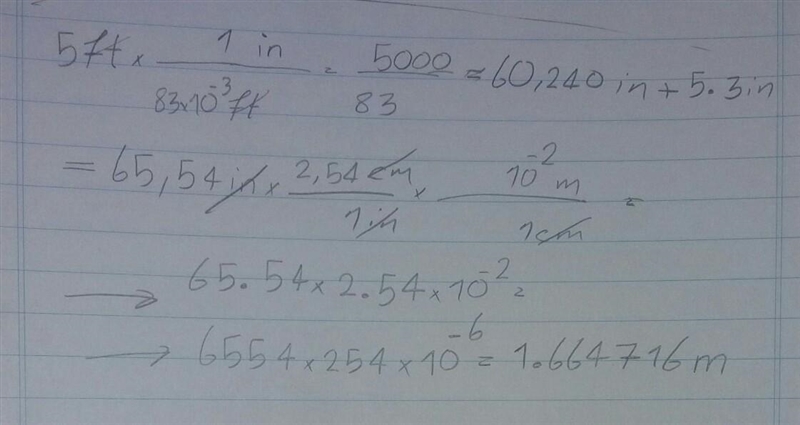 5ft × 1 in / 83×10⁻³ ft = 5000 / 83 = 60,240 in + 5.3 in
= 65,54 in × 2,54 cm / 1 in × 10⁻² m / 1 cm =
→ 65.54 × 2.54 × 10⁻² =
→ 6554 × 254 × 10⁻⁶ = 1.664716 m